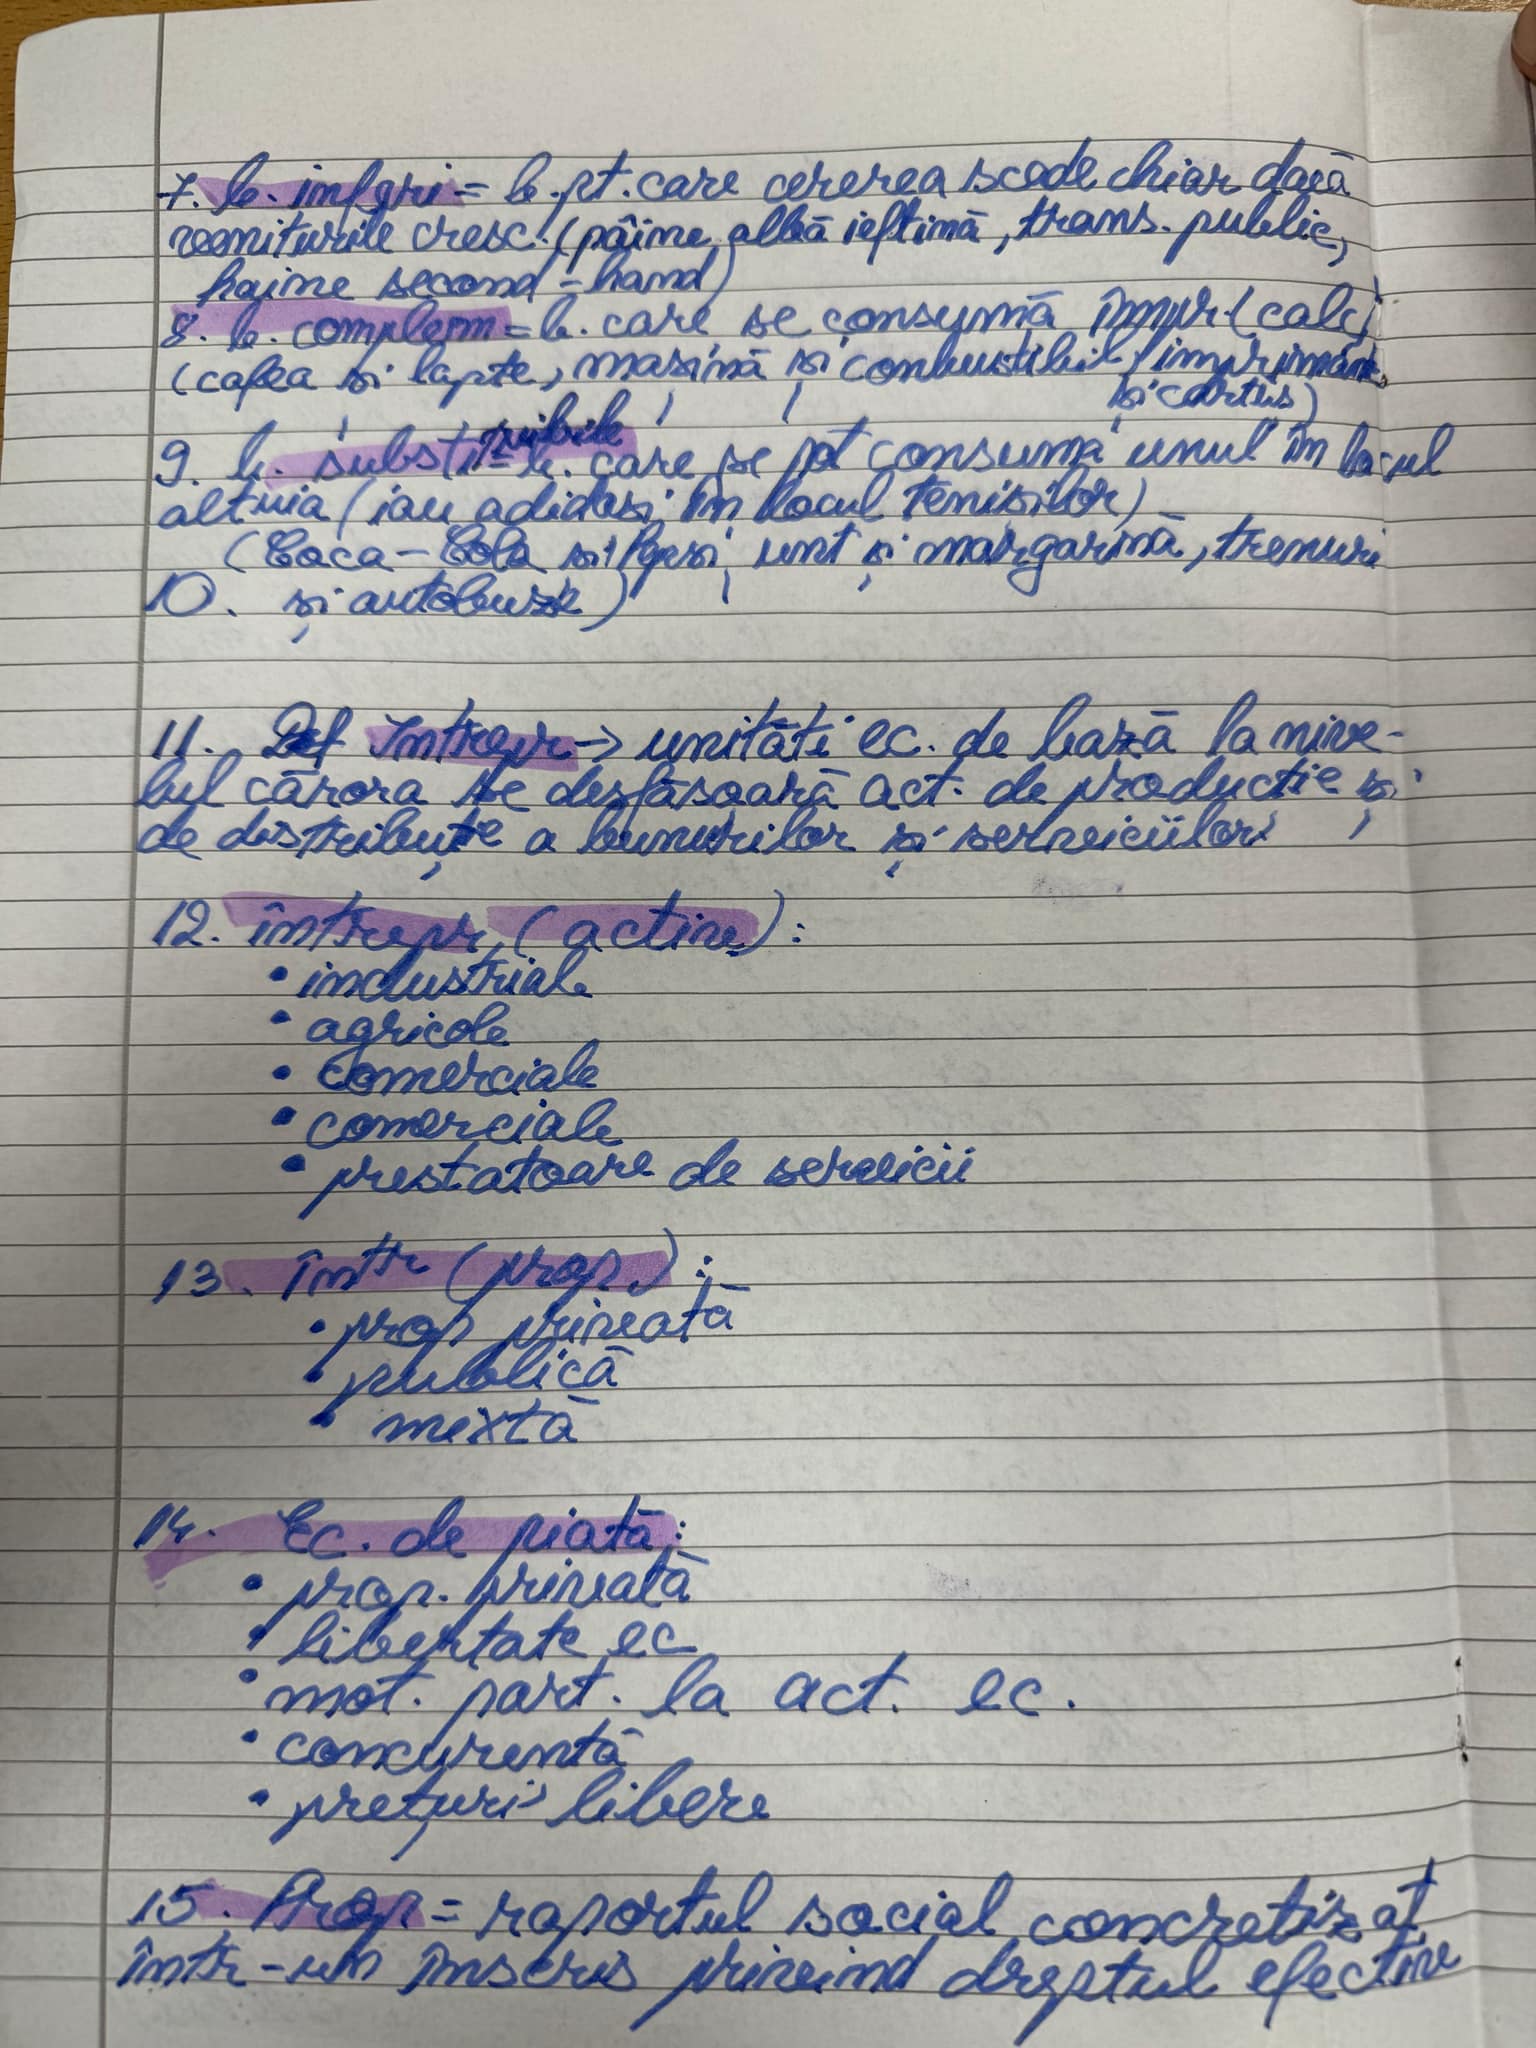 7. b. inferi = b. pt. care cererea scade chiar dacă
veniturile cresc. (pâine albă ieftină, trans. public,
haine second-hand)
8. b. complem = b. care se consumă împr. (calc)
(cafea și lapte, mașină și combustibil, imprimantă
și cartuș)
9. b. substituibile = b. care se pot consuma unul în locul
altuia (iau adidași în locul tenișilor)
(Coca-Cola și Pepsi, unt și margarină, trenuri
10. și autobuze)
11. Def Întrepr → unități ec. de bază la nive-
lul cărora se desfășoară act. de producție și
de distribuție a bunurilor și serviciilor
12. întrepr. (active):
• industriale
• agricole
• comerciale
• comerciale
• prestatoare de servicii
13. într (prop.):
• prop privată
• publică
• mixtă
14. Ec. de piată:
• prop. privată
• libertate ec
• mot. part. la act. ec.
• concurentă
• prețuri libere
15. Prop = raportul social concretizat
într-un înscris privind dreptul efectiv